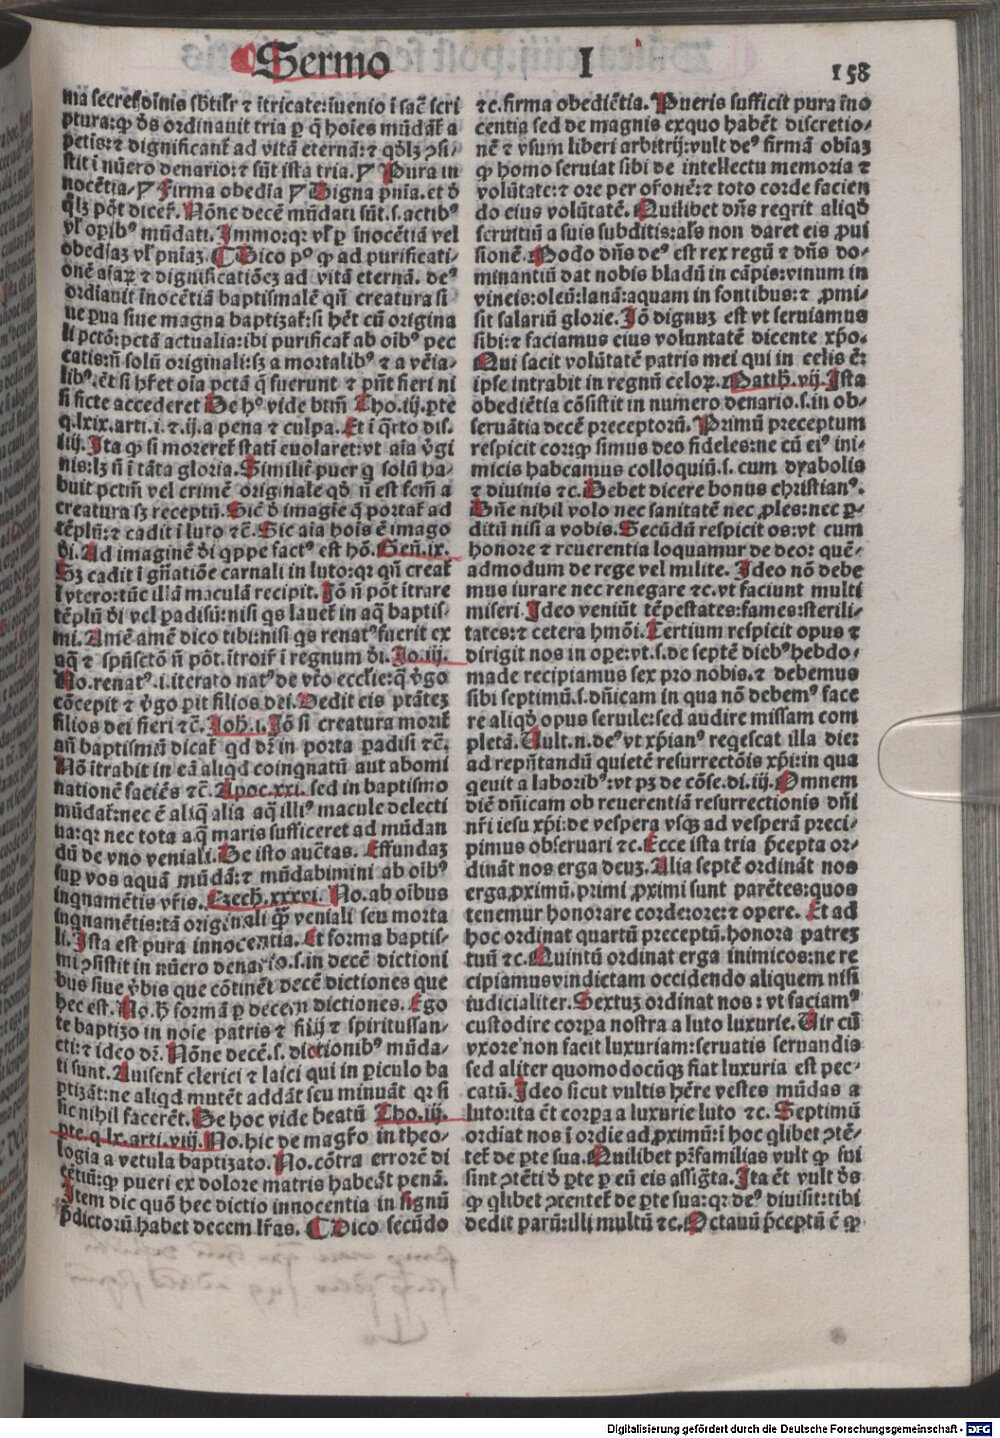 Sermo I 158
ma secret dinis sbtilr ⁊ itricate: iuenio i sac̄ scri
ptura: ꝙ ds ordinauit tria ꝑ q̄ hoīes mūdāt a
petis: ⁊ dignificant ad vitā eternā: ⁊ qdlȝ ꝯsi-
stit i nūero denario: ⁊ sūt ista tria. Pura in
nocētia, Firma obedīa Digna pnīa. et d
qlȝ pōt dicer. Nōne decē mūdati sūt .s. actibꝰ
vl oꝑibꝰ mūdati. Immo: qr vl ꝑ inocētiā vel
obedīaȝ vl pnīaȝ. Dico pº ꝙ ad purificati-
onē aīaꝝ ⁊ dignificatiōeȝ ad vitā eternā. deꝰ
ordīauit īnocētiā baptismalē qn̄ creatura si
ue ꝑua siue magna baptizat: si hēt cū origina
li pctō: pctā actualia: ibi purificat ab oībꝰ pec
catis: n̄ solū originali: sȝ a mortalibꝰ ⁊ a vēia-
libꝰ. ēt si hret oīa pctā q̄ fuerunt ⁊ pn̄t fieri ni
si ficte accederet De hº vide btm̄ Tho. iij. ꝑte
q. lxix. arti. i. ⁊ ij. a pena ⁊ culpa. Et i q̄rto dis.
iiij. Ita ꝙ si moreret statī euolaret: vt aīa vgi
nis: lȝ n̄ i tāta gloria. Similiē puer q solū ha-
buit pctm̄ vel crimē originale qd n̄ est fcm̄ a
creatura sȝ receptū. Sic d imagīe q portat ad
tēplū: ⁊ cadit i luto ⁊c̄. Sic aīa hoīs ē imago
di. Ad imaginē di qppe factꝰ est hō. Geñ. ix.
Sȝ cadit i gn̄atiōe carnali in luto: qr qn̄ creat
i vtero: tūc illā maculā recipit. Jō n̄ pōt itrare
tēplū di vel padisū: nisi qs lauet in aq̄ baptis-
mi. Amē amē dico tibi: nisi qs renatꝰ fuerit ex
aq̄ ⁊ spūsctō n̄ pōt. itroir i regnum di. Jo. iij.
No. renatꝰ .i. iterato natꝰ de vtro eccƚie: q̄ vgo
cōcepit ⁊ vgo ꝑit filios dei. Dedit eis ptātez
filios dei fieri ⁊c̄. Joh. i. Jō si creatura morit
an̄ baptismū dicat qd dr̄ in porta padisi ⁊c̄.
Nō itrabit in eā aliqd coinqnatū aut abomi
nationē faciēs ⁊c̄. Apoc. xxi. sed in baptismo
mūdat: nec ē aliq̄ alia aq̄ illiꝰ macule delecti
ua: qr nec tota aq̄ maris sufficeret ad mūdan
dū de vno veniali. De isto auc̄tas. Effundaȝ
suꝑ vos aquā mūdā: ⁊ mūdabimini ab oībꝰ
inqnamētis vr̄is. Ezech. xxxvi. No. ab oibus
inqnamētis: tā originali ꝙ̄ veniali seu morta
li. Ista est pura innocentia. Et forma baptis-
mi ꝯsistit in nūero denario .s. in decē dictioni
bus siue vbis que cōtinēt decē dictiones que
hec est. No. h̄ formā ꝑ decem dictiones. Ego
te baptizo in noīe patris ⁊ filij ⁊ spiritussan-
cti: ⁊ ideo dr̄. Nōne decē .s. dictionibꝰ mūda-
ti sunt. Auisent clerici ⁊ laici qui in ꝑiculo ba
ptizāt: ne aliqd mutēt addāt seu minuāt qr si
sic nihil facerēt. De hoc vide beatū Tho. iij.
pte. q. lx. arti. viij. No. hic de magro in theo-
logia a vetula baptizato. No. cōtra errorē di
cētiū: ꝙ pueri ex dolore matris habeāt penā.
Item dic quō hec dictio innocentia in signū
p̄dictorū habet decem lr̄as. Dico secūdo
⁊c. firma obediētia. Pueris sufficit pura īno
centia sed de magnis exquo habēt discretio-
nē ⁊ vsum liberi arbitrij: vult deꝰ firmā obīaȝ
ꝙ homo seruiat sibi de intellectu memoria ⁊
volūtate: ⁊ ore per orōnē: ⁊ toto corde facien
do eius volūtatē. Quilibet dn̄s reqrit aliqd
seruitiū a suis subditis: als non daret eis ꝓui
sionē. Modo dn̄s deꝰ est rex regū ⁊ dn̄s do-
minantiū dat nobis bladū in cāpis: vinum in
vineis: oleū: lanā: aquam in fontibus: ⁊ ꝓmi-
sit salariū glorie. Jō dignuȝ est vt seruiamus
sibi: ⁊ faciamus eius voluntatē dicente xp̄o.
Qui facit volūtatē patris mei qui in celis ē:
ipse intrabit in regnū celoꝝ. Matth. vij. Ista
obediētia cōsistit in numero denario .s. in ob-
seruātia decē preceptorū. Primū preceptum
respicit cor: ꝙ simus deo fideles: ne cū eiꝰ ini-
micis habeamus colloquiū .s. cum dyabolis
⁊ diuinis ⁊c. Debet dicere bonus christianꝰ.
Dn̄e nihil volo nec sanitatē nec ꝓles: nec ꝑ-
ditū nisi a vobis. Secūdū respicit os: vt cum
honore ⁊ reuerentia loquamur de deo: quē-
admodum de rege vel milite. Ideo nō debe
mus iurare nec renegare ⁊c. vt faciunt multi
miseri. Ideo veniūt tēpestates: fames: sterili-
tates: ⁊ cetera hmōi. Tertium respicit opus ⁊
dirigit nos in oꝑe: vt .s. de septē diebꝰ hebdo-
made recipiamus sex pro nobis. ⁊ debemus
sibi septimū .s. dn̄icam in qua nō debemꝰ face
re aliqd opus seruile: sed audire missam com
pletā. Uult .n. deꝰ vt xp̄ianꝰ reqescat illa die:
ad repn̄tandū quietē resurrectōis xp̄i: in qua
qeuit a laboribꝰ: vt pȝ de cōse. di. iij. Omnem
diē dn̄icam ob reuerentiā resurrectionis dn̄i
nr̄i iesu xp̄i: de vespera vsqȝ ad vesperā preci-
pimus obseruari ⁊c. Ecce ista tria p̄cepta or-
dināt nos erga deuȝ. Alia septē ordināt nos
erga ꝓximū. primi ꝓximi sunt parētes: quos
tenemur honorare corde: ore: ⁊ opere. Et ad
hoc ordinat quartū preceptū. honora patreȝ
tuū ⁊c. Quintū ordinat erga inimicos: ne re
cipiamus vindictam occidendo aliquem nisi
iudicialiter. Sextuȝ ordinat nos: vt faciamꝰ
custodire corꝑa nostra a luto luxurie. Uir cū
vxore non facit luxuriam: seruatis seruandis
sed aliter quomodocūqȝ fiat luxuria est pec-
catū. Ideo sicut vultis hēre vestes mūdas a
luto: ita ēt corꝑa a luxurie luto ⁊c. Septimū
ordiat nos i ordie ad ꝓximū: i hoc qlibet ꝯtē-
tet de ꝑte sua. Quilibet pr̄familias vult ꝙ sui
sint ꝯtēti d ꝑte ꝑ eū eis assigta. Ita ēt vult ds
ꝙ qlibet ꝯtentet de ꝑte sua: qr deꝰ diuisit: tibi
dedit parū: illi multū ⁊c. Octauū p̄ceptū ē ꝙ
Digitalisierung gefördert durch die Deutsche Forschungsgemeinschaft - DFG